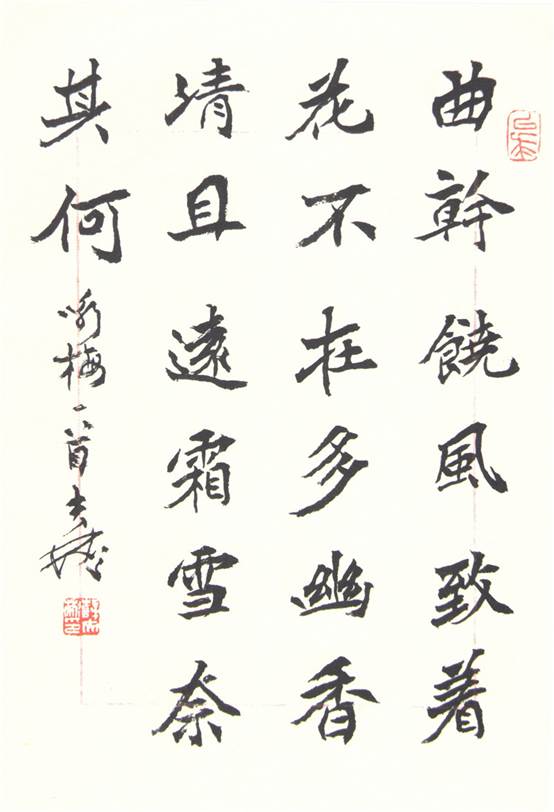 曲幹饒風致着
花不在多幽香
清且遠霜雪奈
其何
咏梅一首